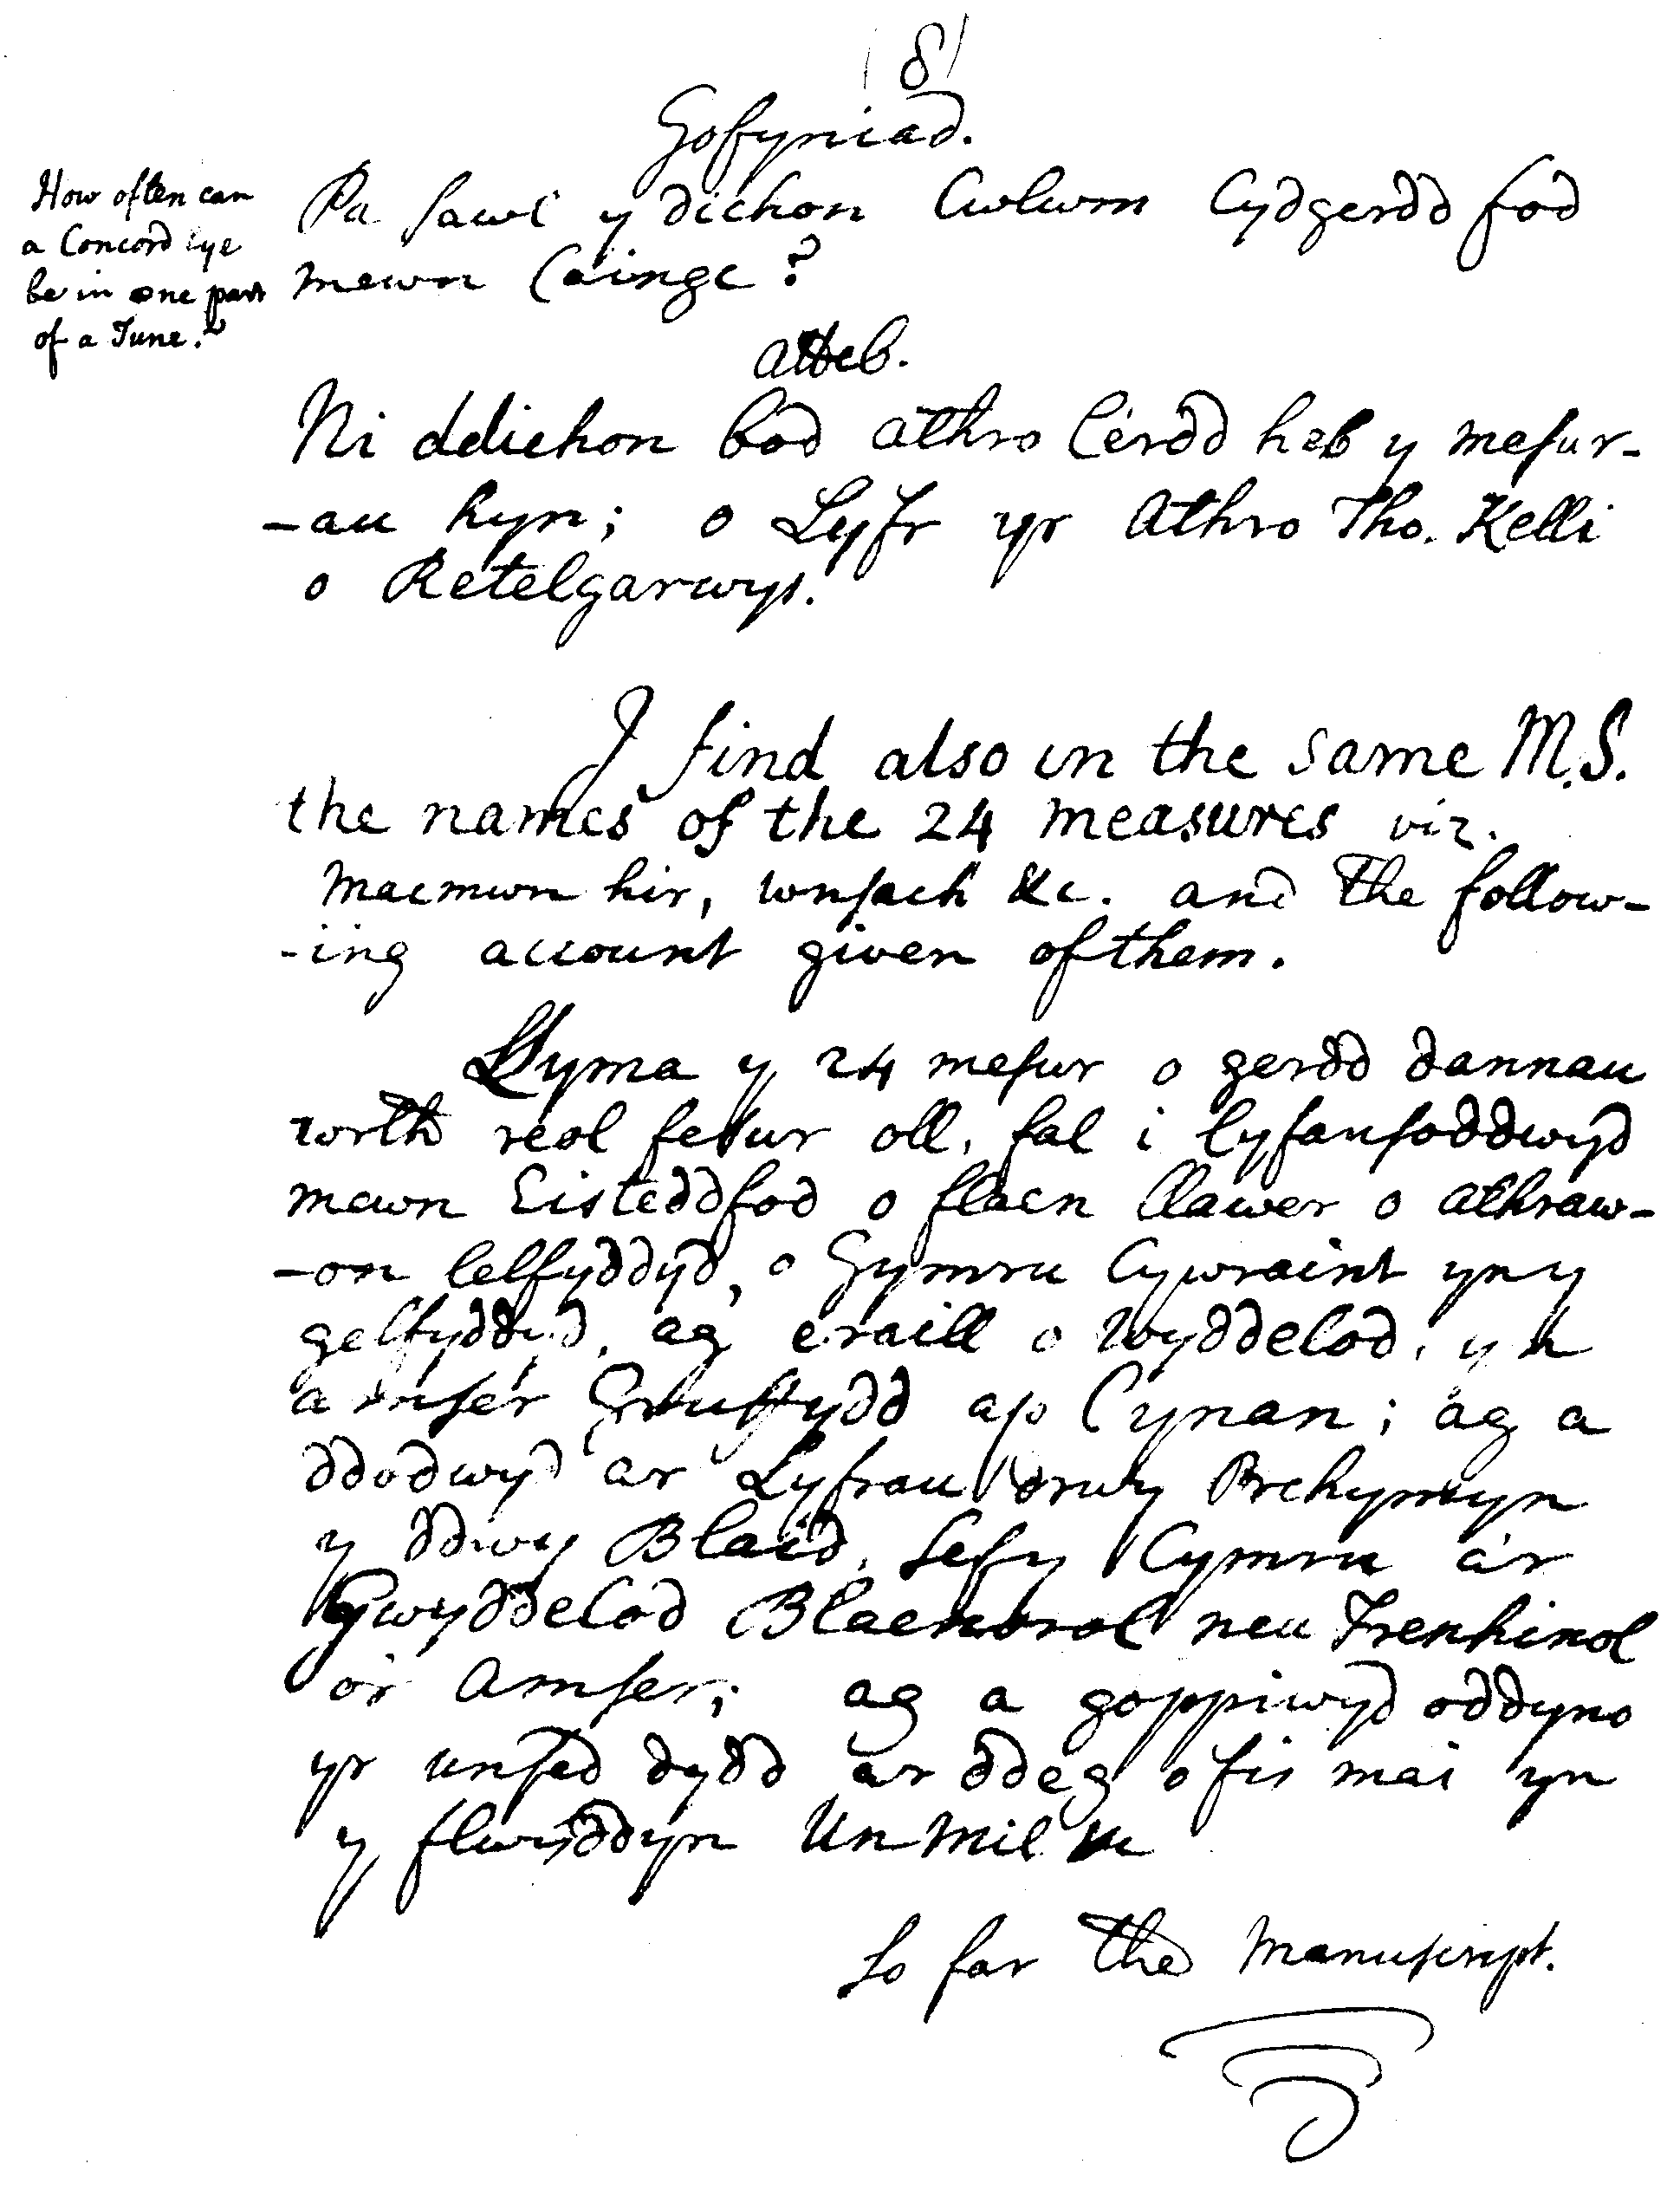 8
Gofyniad.
Pa sawl y dichon Cwlwm Cydgerdd fod
mewn Cainge?
How often can
a Concord lye
be in one part
of a Tune?
Atteb.
Ni ddichon bod Athro Cerdd heb y mesur-
-au hyn; o Lyfr yr Athro Tho. Kelli
o Retelgarwys.
I find also in the same M.S.
the names of the 24 measures viz.
Macmwn hir, wnsach &c. and the follow-
-ing account given of them.
Llyma y 24 mesur o gerdd dannau
wrth reol fesur oll, fal i cyfansoddwyd
mewn Eisteddfod o flaen llawer o athraw-
-on Celfyddyd, o Gymru Cywraint yn y
gelfyddyd, ag eraill o Wyddelod, yn
amser Gruffydd ap Cynan; ag a
ddodwyd ar Lyfrau drwy Brchymyn
y ddwy Blaid, sef y Cymru a'r
Gwyddelod Blaenorol neu Frenhinol
o'r Amser; ag a goppiwyd oddyno
yr unfed dydd ar ddeg o fis mai yn
y flwyddyn Un Mil
So far the Manuscript.